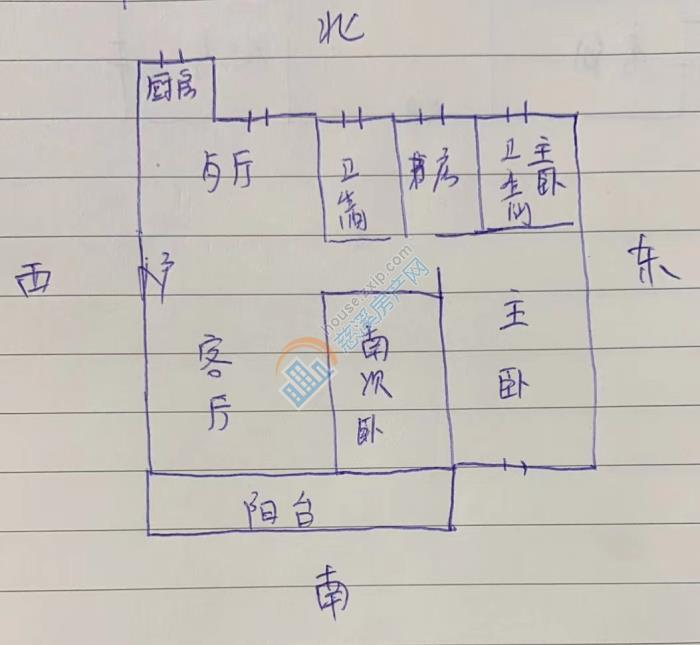 北
厨房
与厅
卫生间
书房
卫生间
主卧
西
门
东
house.zxip.com
慈溪房产网
客厅
南次卧
主卧
阳台
南